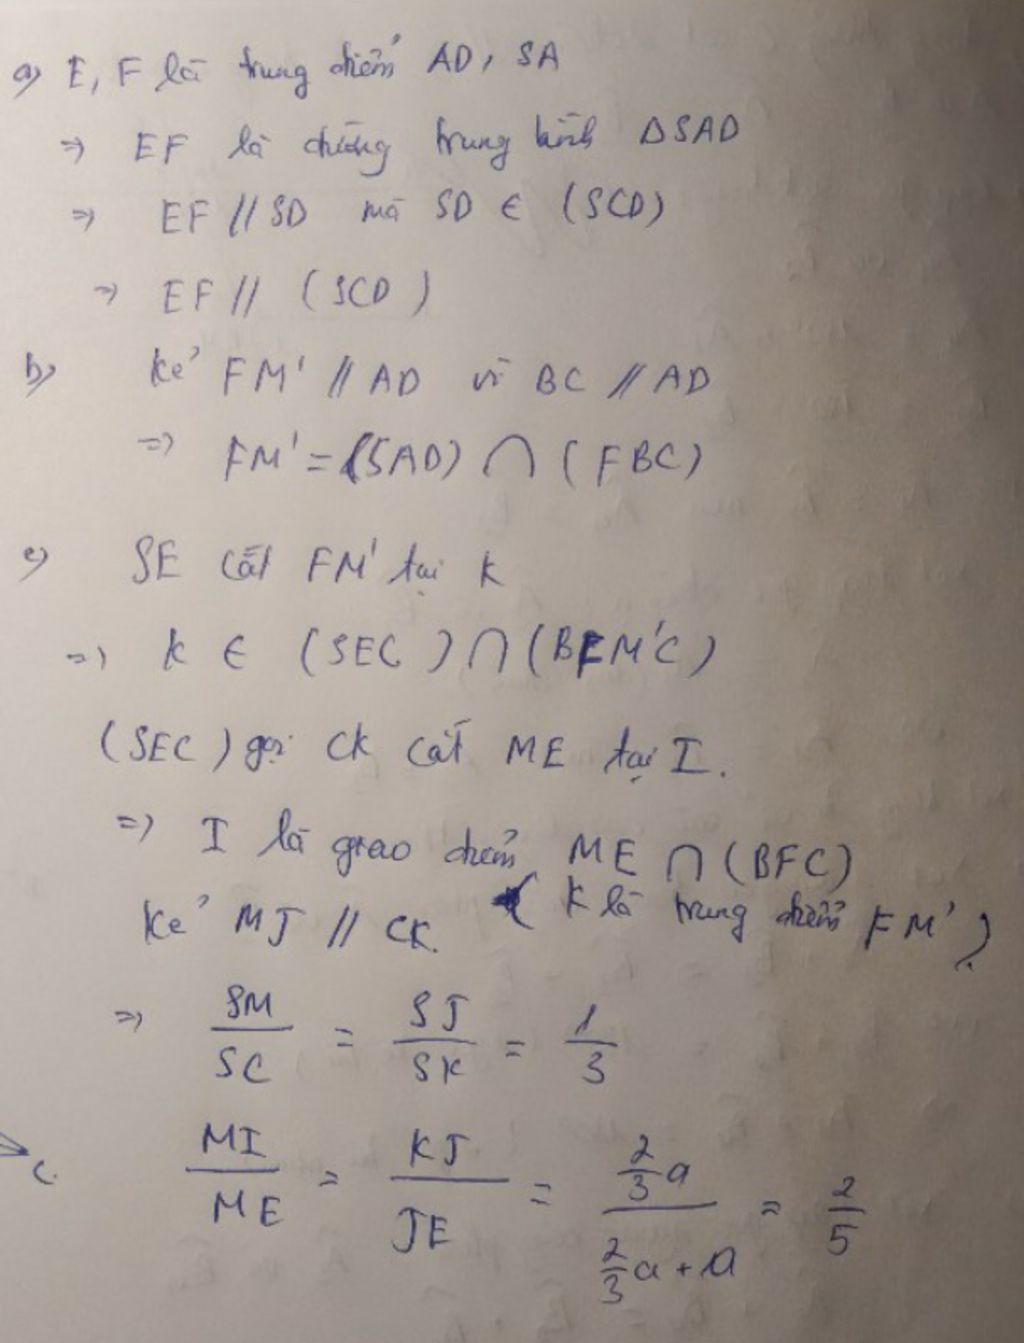 a) E, F là trung điểm AD, SA
=> EF là đường trung bình ΔSAD
=> EF // SD mà SD ∈ (SCD)
=> EF // (SCD)
b) kẻ FM' // AD vì BC // AD
=> FM' = (SAD) ∩ (FBC)
c) SE cắt FM' tại K
=> K ∈ (SEC) ∩ (BFM'C)
(SEC) gọi CK cắt ME tại I.
=> I là giao điểm ME ∩ (BFC)
kẻ MJ // CK. (K là trung điểm FM')
=> SM/SC = SJ/SK = 1/3
C. MI/ME = KJ/JE = (2/3 a)/(2/3 a + a) = 2/5